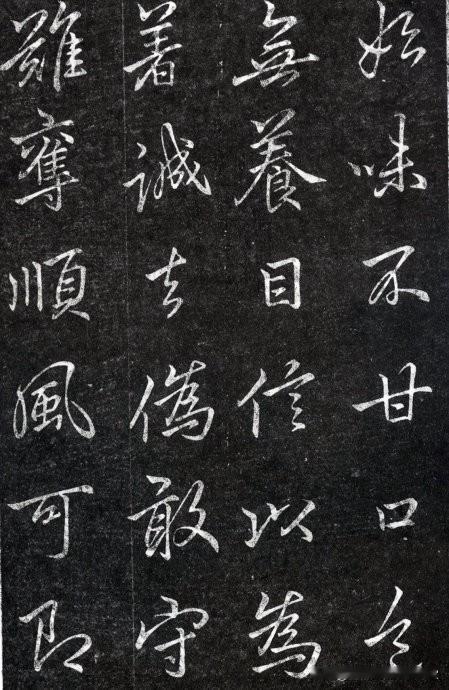 始味不甘口
無養目信以為
著誠去偽敢守
難奪順風可即